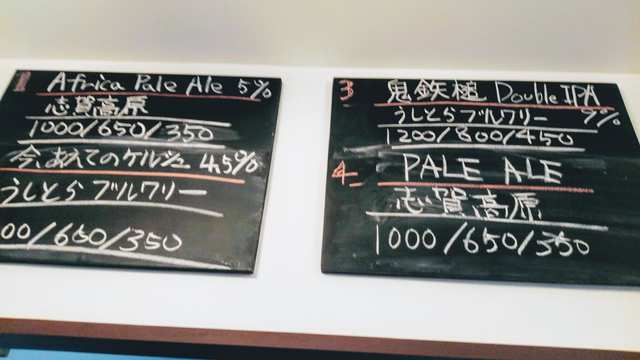 1 Africa Pale Ale 5%
志賀高原
1000/650/350
今、あえてのケルシュ 4.5%
うしとらブルワリー
00/650/350
3 鬼鉄槌 Double IPA
うしとらブルワリー 9%
1200/800/450
4 PALE ALE
志賀高原
1000/650/350